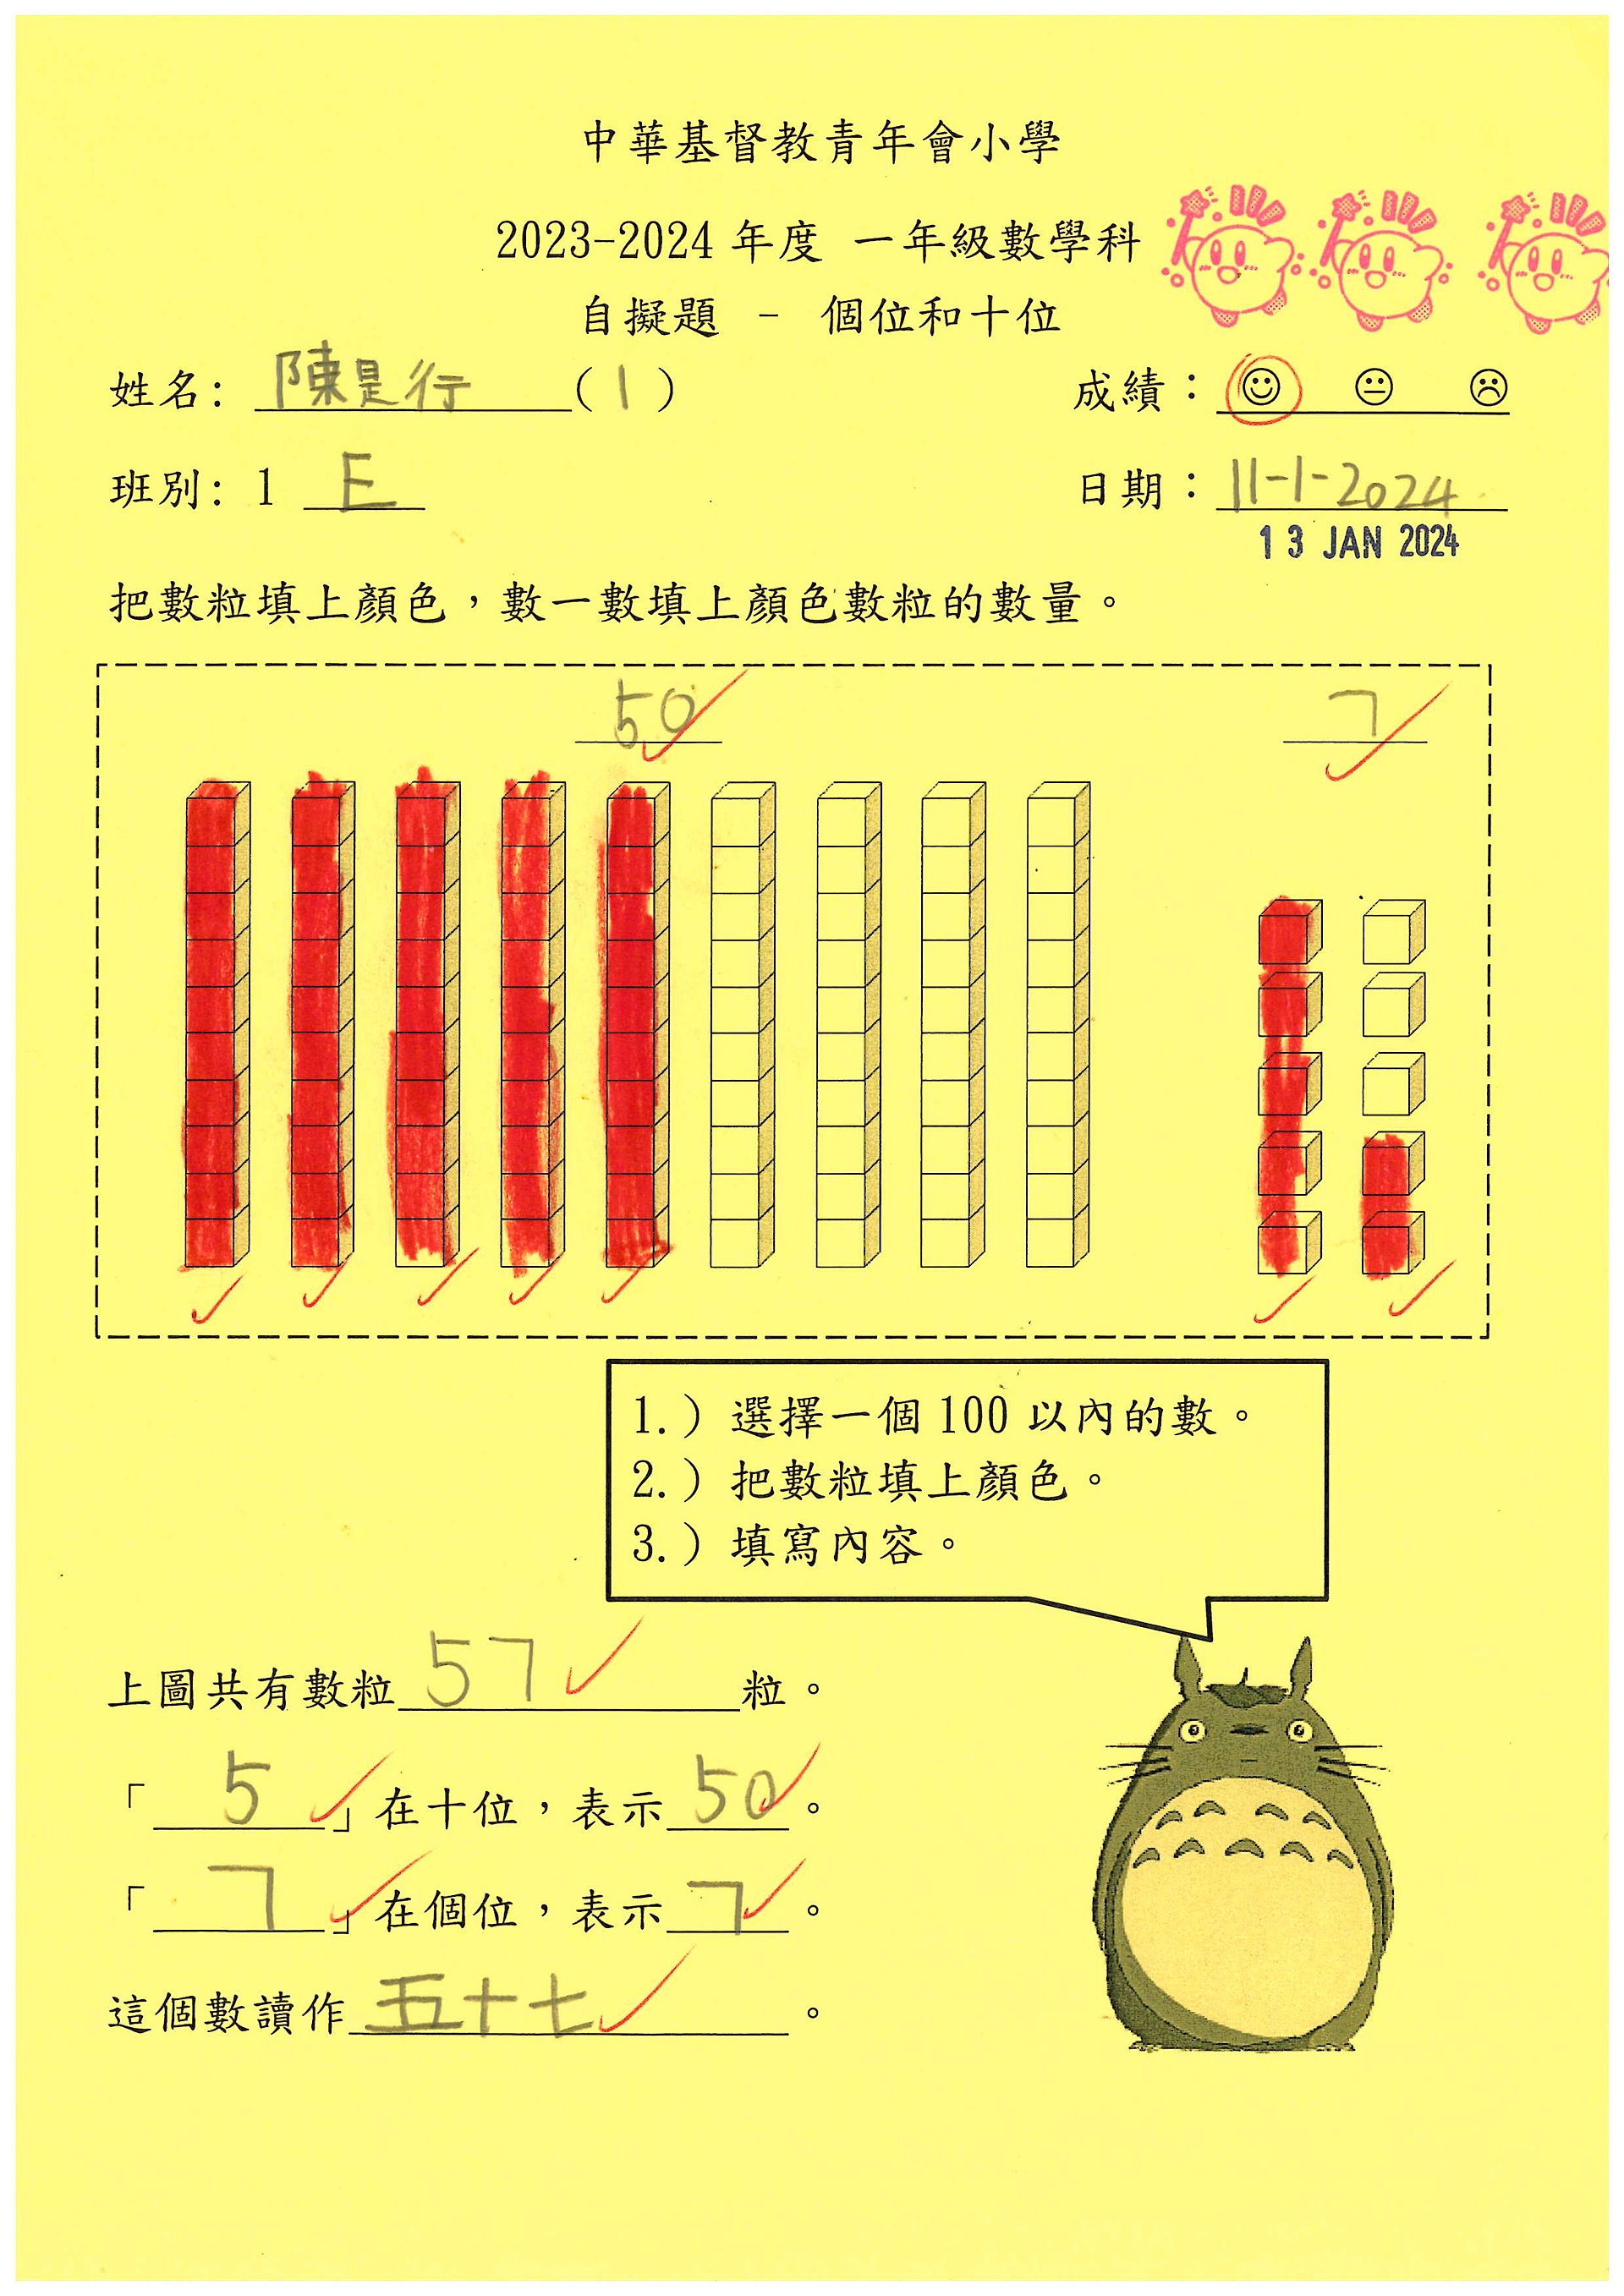 中華基督教青年會小學
2023-2024 年度 一年級數學科
自擬題 - 個位和十位
姓名: 陳是行 (1) 成績：
班別: 1 E 日期：11-1-2024
13 JAN 2024
把數粒填上顏色，數一數填上顏色數粒的數量。
50 7
1.) 選擇一個 100 以內的數。
2.) 把數粒填上顏色。
3.) 填寫內容。
上圖共有數粒 57 粒。
「 5 」在十位，表示 50 。
「 7 」在個位，表示 7 。
這個數讀作 五十七 。